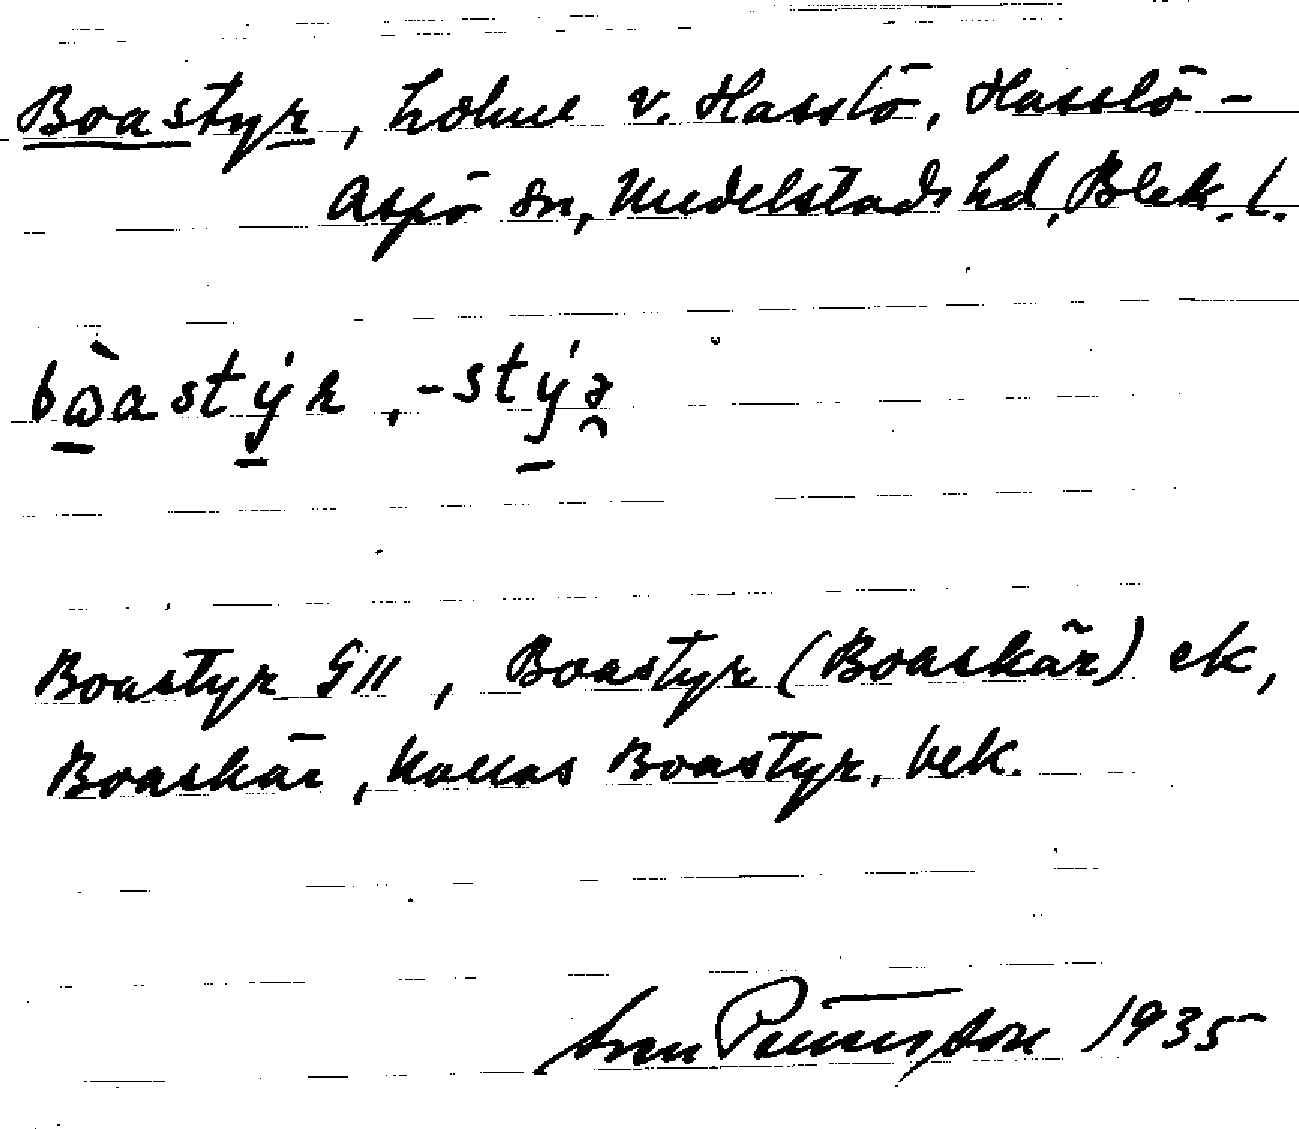 Boastyr, holme v. Hasslö, Hasslö-
Aspö sn, Medelstads hd, Blek. l.
bωastyr, -styə
Boastyr GII, Boastyr (Boaskär) ek,
Boaskär, kallas Boastyr, bek.
Sven 1935